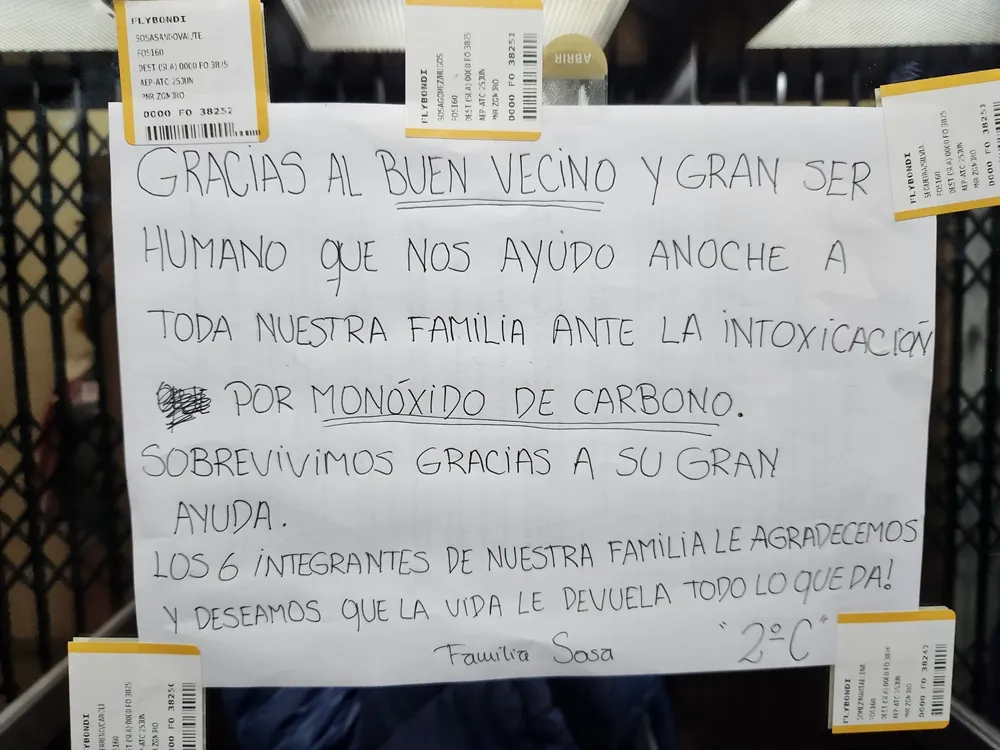 FLYBONDI
SOSASANDOVAL/TE
FO5160
DEST (SLA) 0000 FO 3825
AEP-ATC 25JUN
PNR ZGNJRO
0000 FO 38252
FLYBONDI
FO5160
DEST (SLA) 0000 FO 3825
AEP-ATC 25JUN
PNR ZGNJRO
0000 FO 38253
ABRIR
FLYBONDI
FO5160
DEST (SLA) 0000 FO 3825
AEP-ATC 25JUN
PNR ZGNJRO
0000 FO 38251
GRACIAS AL BUEN VECINO Y GRAN SER
HUMANO QUE NOS AYUDO ANOCHE A
TODA NUESTRA FAMILIA ANTE LA INTOXICACIOÑ
POR MONÓXIDO DE CARBONO.
SOBREVIVIMOS GRACIAS A SU GRAN
AYUDA.
LOS 6 INTEGRANTES DE NUESTRA FAMILIA LE AGRADECEMOS
Y DESEAMOS QUE LA VIDA LE DEVUELA TODO LO QUE DA!
Familia Sosa "2ºC"
FLYBONDI
DEST (SLA) 0000 FO 3825
AEP-ATC 25JUN
0000 FO 3825
FLYBONDI
FO5160
DEST (SLA) 0000 FO 3824
AEP-ATC 25JUN
PNR ZGNJRO
0000 FO 38247